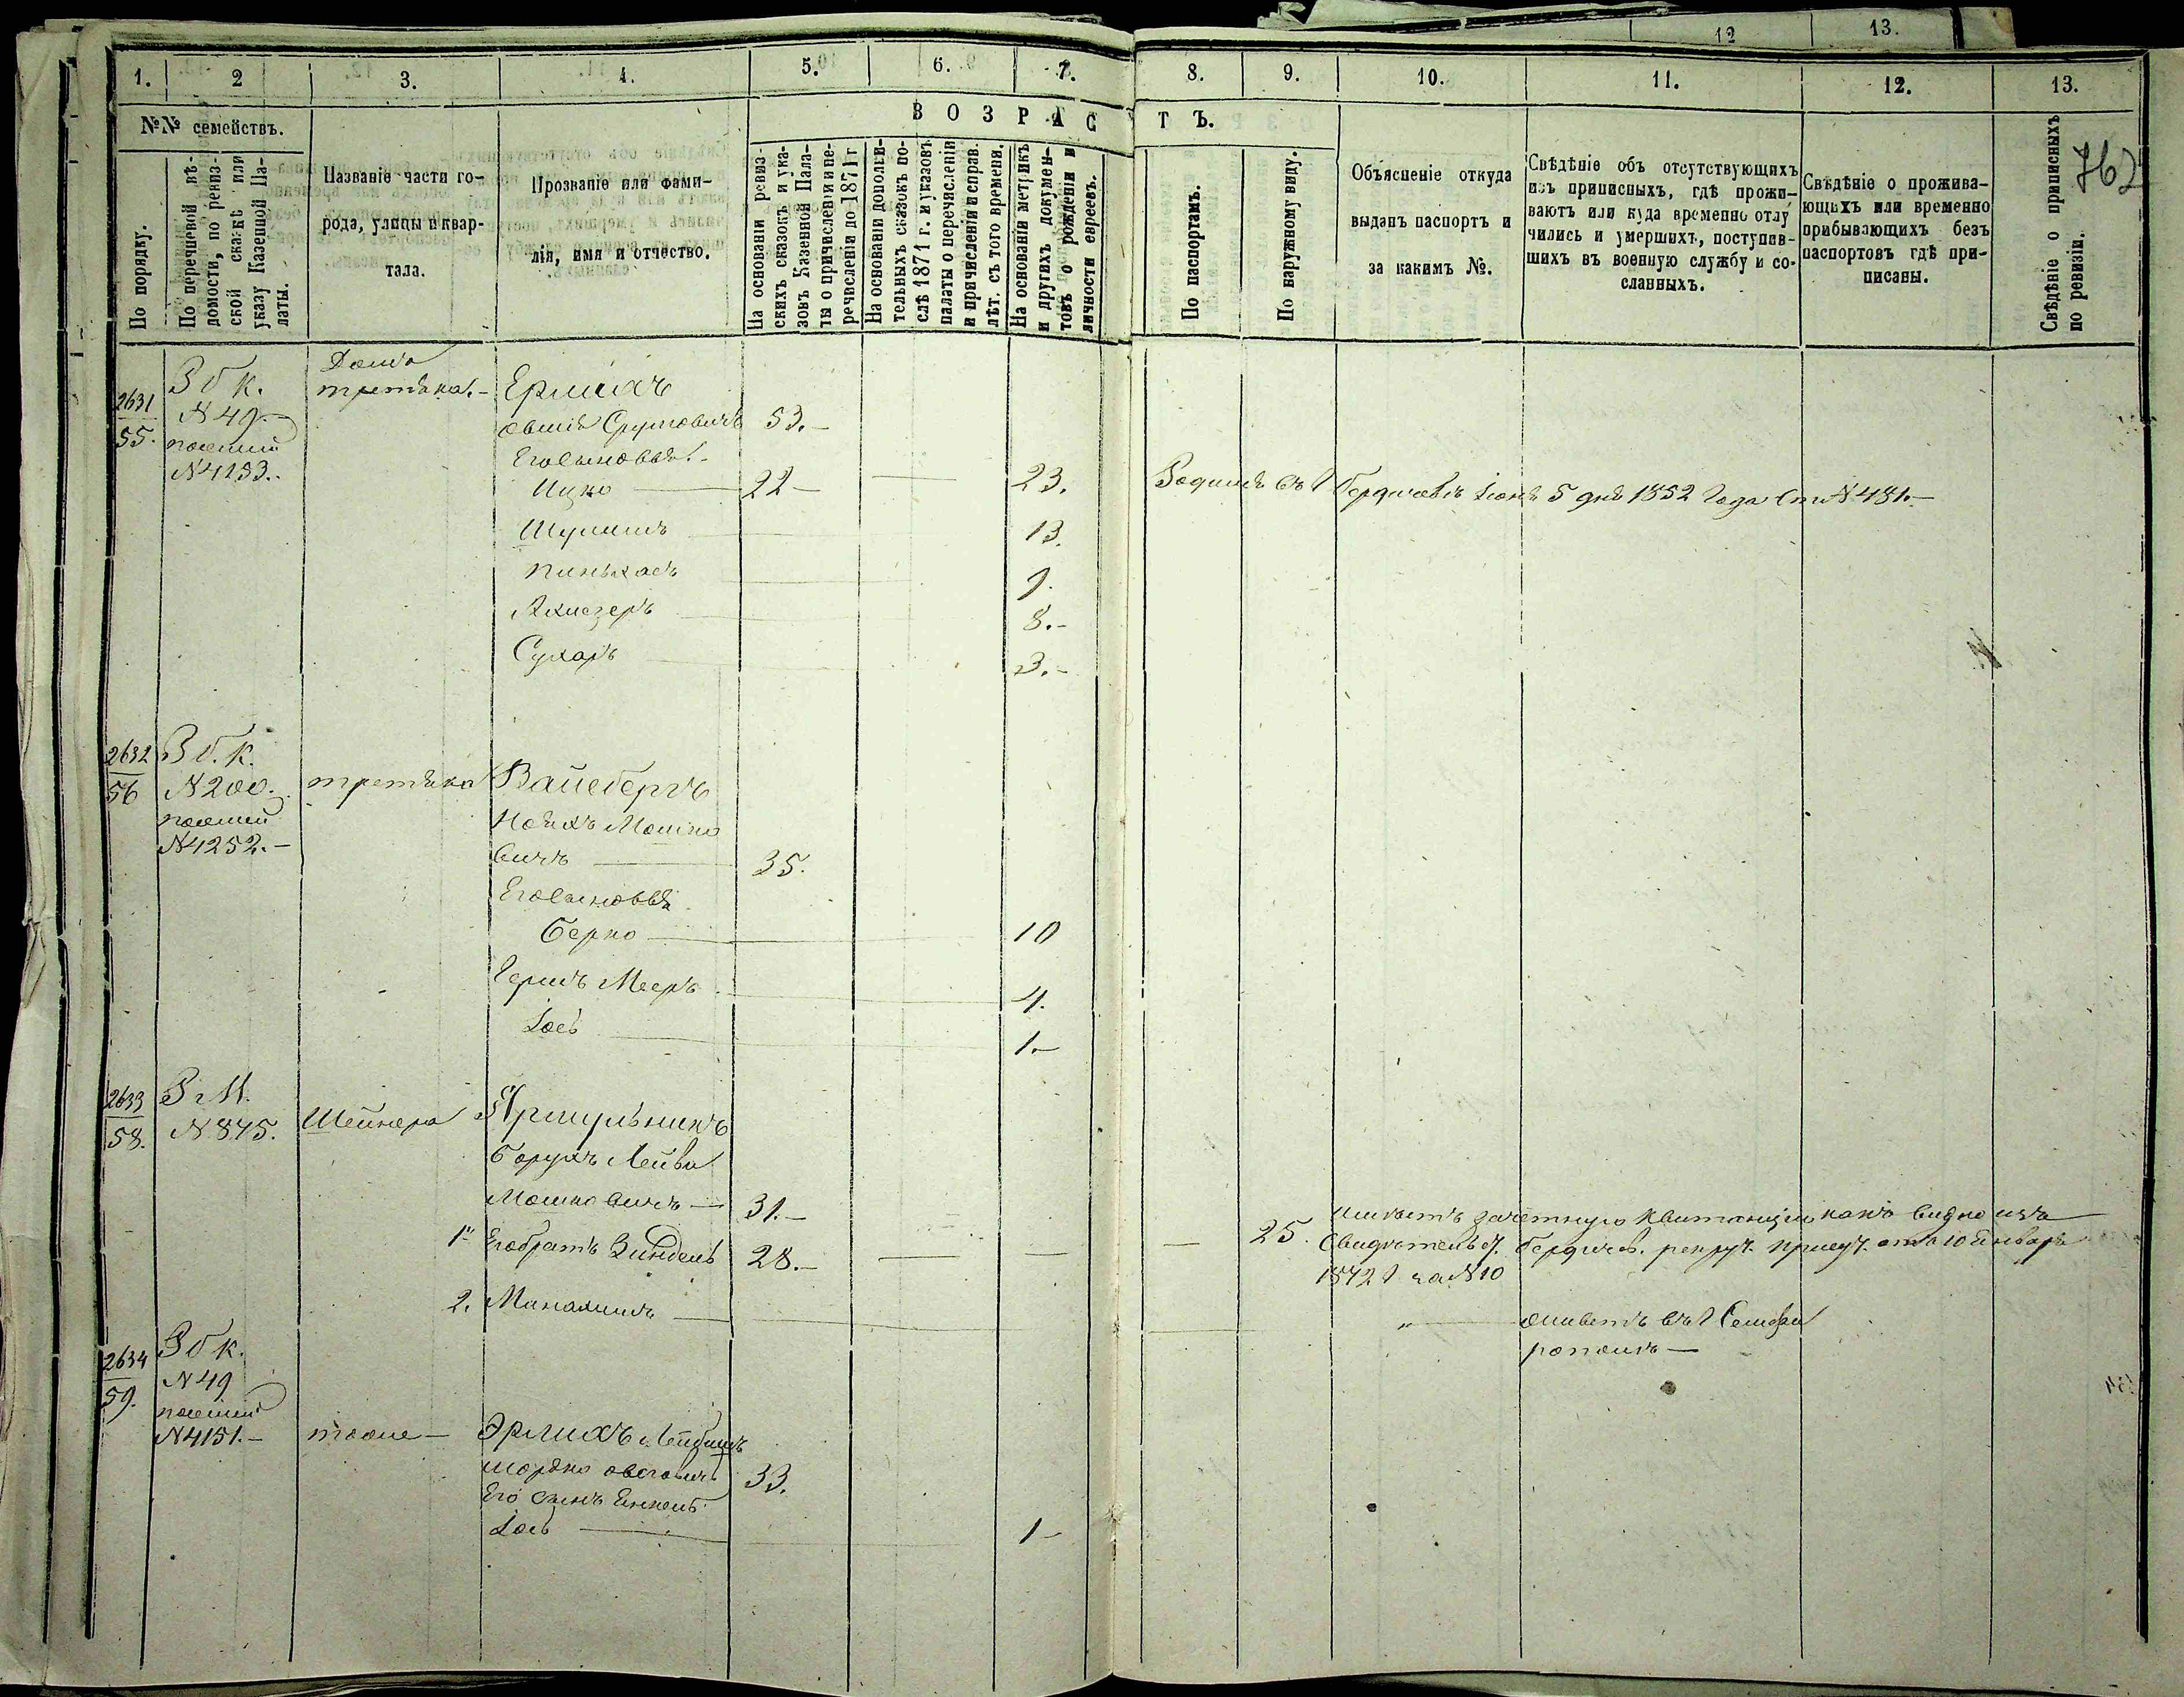 12 13.
1. 2 3. 4. 5. 6. 7. 8. 9. 10. 11. 12. 13.
№№ семействъ.
По порядку.
По перечневой вѣ-
домости, по ревиз-
ской сказкѣ или
указу Казенной Па-
латы.
Названіе части го-
рода, улицы и квар-
тала.
Прозваніе или фами-
лія, имя и отчество.
ВОЗРАСТЪ.
На основаніи ревиз-
скихъ сказокъ и ука-
зовъ Казенной Пала-
ты о причисленіи и пе-
речисленіи до 1871 г.
На основаніи дополни-
тельныхъ сказокъ по-
слѣ 1871 г. и указовъ
палаты о перечисленіи
и причисленіи и справ.
лѣт. съ того времени.
На основаніи метрикъ
и другихъ докумен-
товъ о рожденіи и
личности евреевъ.
По паспортамъ.
По наружному виду.
Объясненіе откуда
выданъ паспортъ и
за какимъ №.
Свѣдѣніе объ отсутствующихъ
изъ приписныхъ, гдѣ прожи-
ваютъ или куда временно отлу-
чились и умершихъ, поступив-
шихъ въ военную службу и со-
сланныхъ.
Свѣдѣніе о прожива-
ющихъ или временно
прибывающихъ безъ
паспортовъ гдѣ при-
писаны.
Свѣдѣніе о приписныхъ
по ревизіи.
762
2631
55.
З б к.
N 49.
N 4153.
Домъ
третяка.
Ермихъ
Срулевичъ 53.
Его сыновья.
Ицко 22 23. Родился въ г Бердичевѣ Іюня 5 дня 1852 года ст N 481.
Шулимъ 13.
Пинькасъ 9.
Ахиезеръ 8.
Сухаръ 3.
2632
56
З б. к.
N 200.
N 4252.
третяка
Вайсбергъ
Мошко
вичъ 35.
Его сыновья
Берко 10
Гершъ Мееръ 4.
Іось 1.
2633
58.
З г М.
N 845.
Шейнера
Ярмульникъ
Борухъ Лейба
Мошковичъ 31.
1 Его братъ Зиндель 28. 25. имѣетъ зачетную квитанцію какъ видно изъ
свидѣтельс. Бердичев. рекрут. присут. отъ 10 Января
1872 г за N 10
2. Манахимъ " живетъ въ г Симфе
рополѣ
2634
59.
З б к.
N 49
N 4151.
тоже
Эрлихъ Лейбишъ
Мордко 33.
Его сынъ Янкель
Іось 1